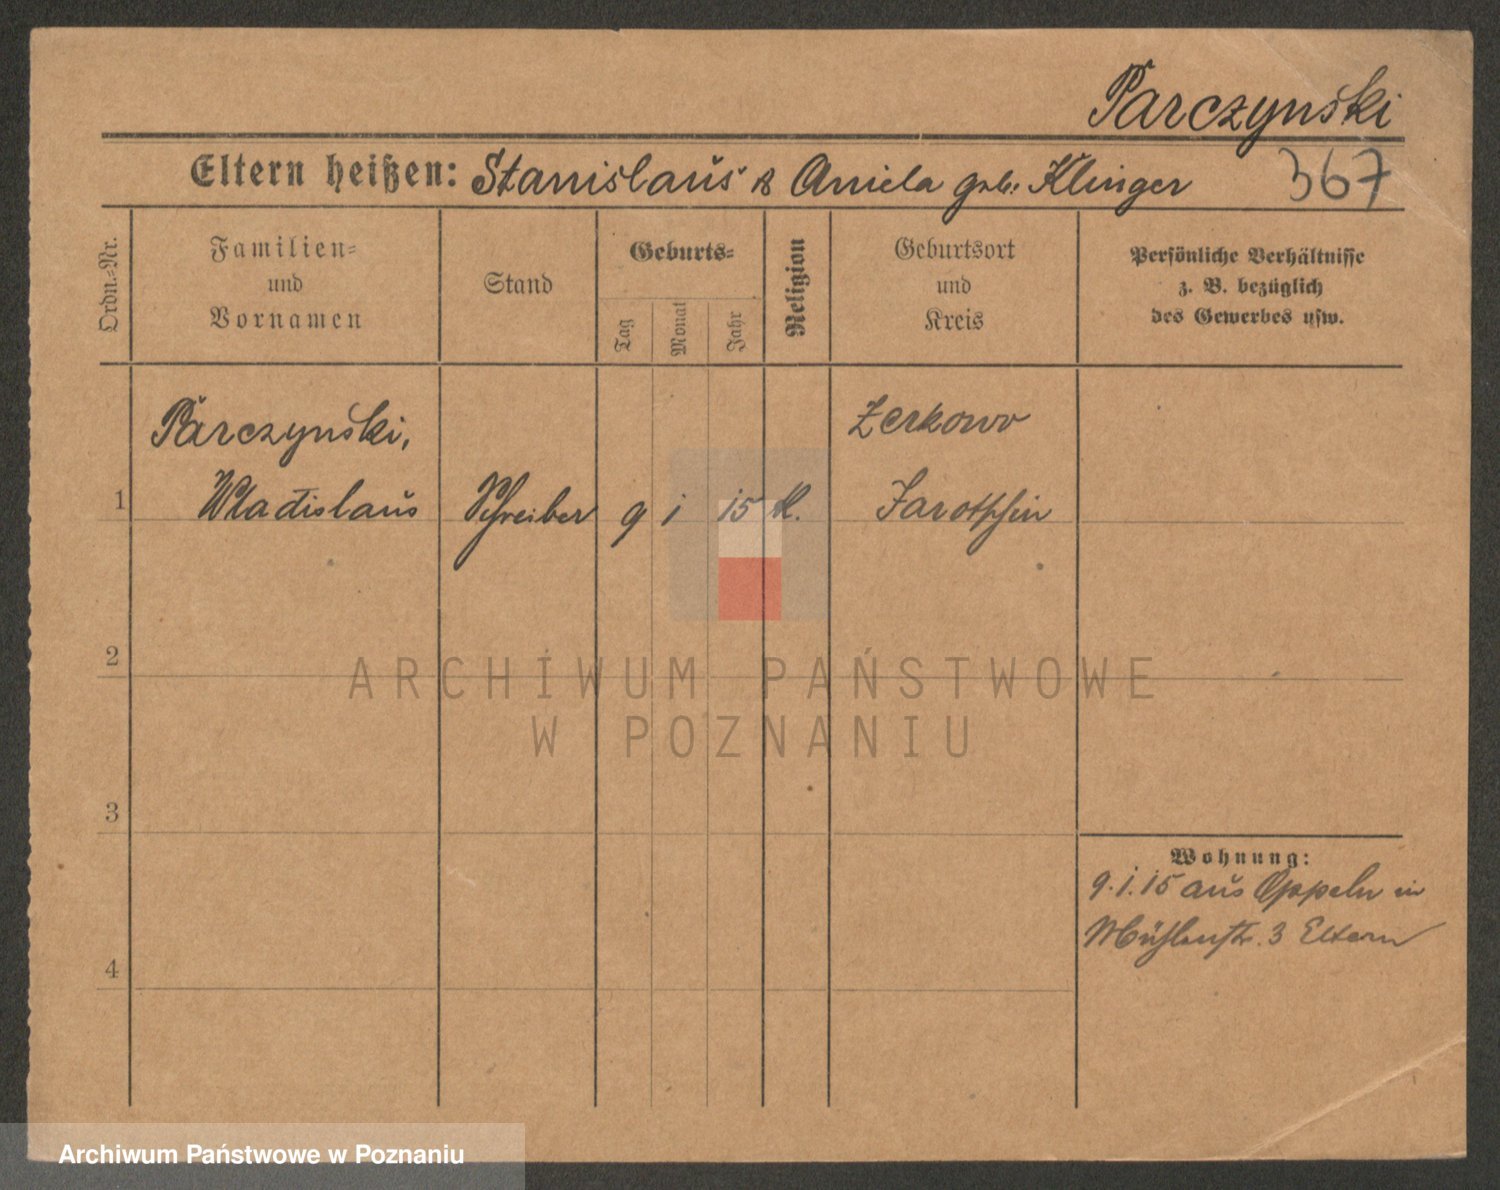 Parczynski
Eltern heißen: Stanislaus & Aniela geb. Klinger 367
Ordn.=Nr.
Familien=
und
Vornamen
Stand
Geburts=
Tag
Monat
Jahr
Religion
Geburtsort
und
Kreis
Persönliche Verhältnisse
z. B. bezüglich
des Gewerbes usw.
Parczynski,
Zerkowo
1 Wladislaus Schreiber 9 1 15 K. Jarotschin
2
ARCHIWUM PAŃSTWOWE
W POZNANIU
3
Wohnung:
9.1.15 aus Oppeln in
Mühlenstr. 3 Eltern
4
Archiwum Państwowe w Poznaniu